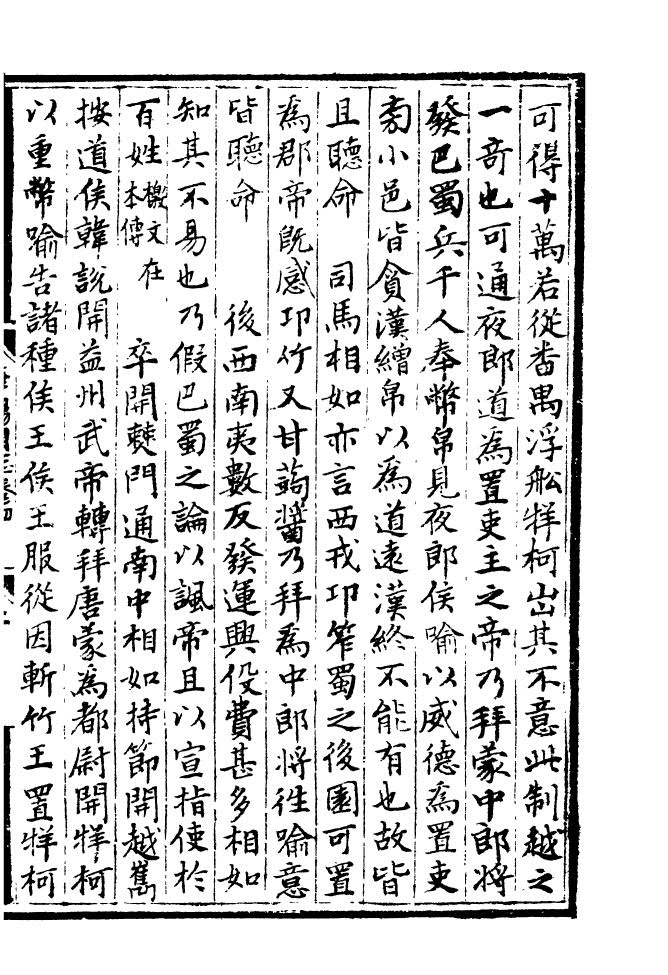 可得十萬若從畨禺浮舩牂柯出其不意此制越之
一竒也可通夜郎道為置吏主之帝乃拜蒙中郎將
發巴蜀兵千人奉幣帛見夜郎侯喻以威德為置吏
旁小邑皆貪漢繒帛以為道遠漢終不能有也故皆
且聽命　司馬相如亦言西戎卭笮蜀之後園可置
為郡帝既感卭竹又甘蒟醬乃拜為中郎將徃喻意
皆聽命　後西南夷數反發運興役費甚多相如
知其不易也乃假巴蜀之論以諷帝且以宣指使於
百姓檄文在本傳　卒開僰門通南中相如持節開越嶲
按道侯韓説開益州武帝轉拜唐蒙為都尉開牂柯
以重幣喻告諸種侯王侯王服從因斬竹王置牂柯
華陽國志卷四